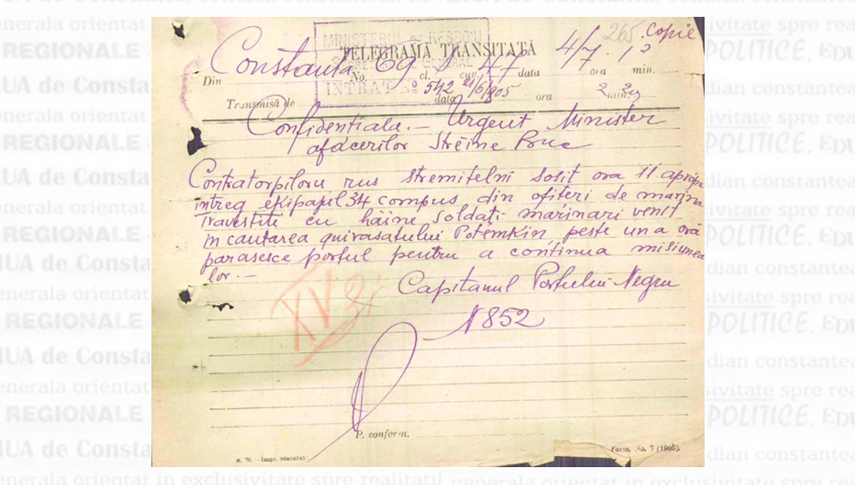 265. Copie
MINISTERUL DE RESBOIU
TELEGRAMĂ TRANSITATĂ
Constanta 69 47 4/7. 1º
Din No. cl. cuv. data ora min.
INTRAT Nº 542 21/6/905
Transmisă de data ora
Confidentiala. – Urgent Minister
afacerilor Streine Buc
Contratorpiloru rus stremitelni sosit ora 11 aprópe
intreg ekipagil 34 compus din ofiteri de marina
travestite cu haine soldati marinari venit
in cautarea quirasatului Potemkin peste una ora
parasesce portul pentru a continua misiunea
lor. –
Capitanul Portului Negru
N 852
XV
P. conform.
Imp. Statului
Form. No. 7 (1905).